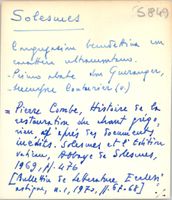 Solesmes
S849
Congregación benedictina de
carácter ultramontano.
- Primer abate Dom Gueranger.
-
= Pierre Combe, Histoire de la
restauration du chant grégo-
rien d'après des documents
inédits. Solesmes et l'Edition
vaticane, Abbaye de Solesmes,
1969, pp. 476
[Bulletin de Littérature Ecclési-
astique, n.1, 1970, pp. 67-68]